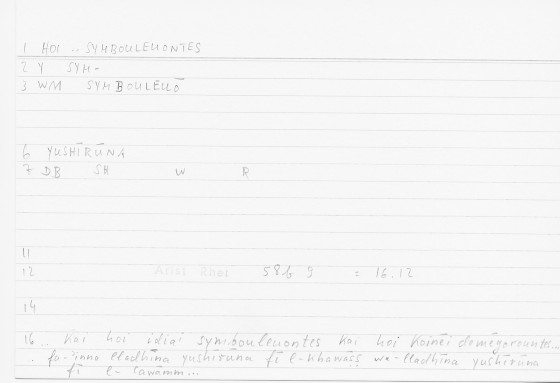 1 HOI .. SYMBOULEUONTES
2 Y SYM-
3 WM SYMBOULEUŌ
6 YUSHĪRŪNA
7 DB SH W R
11
12 Arist Rhet 58b 9 = 16.12
14
16 .. kai hoi idiai symbouleuontes kai hoi koinēi dēmēgorountes...
. fa-'inna lladhīna yushīrūna fī l-khawāṣṣ wa-lladhīna yushīrūna
fī l-ʿawāmm...